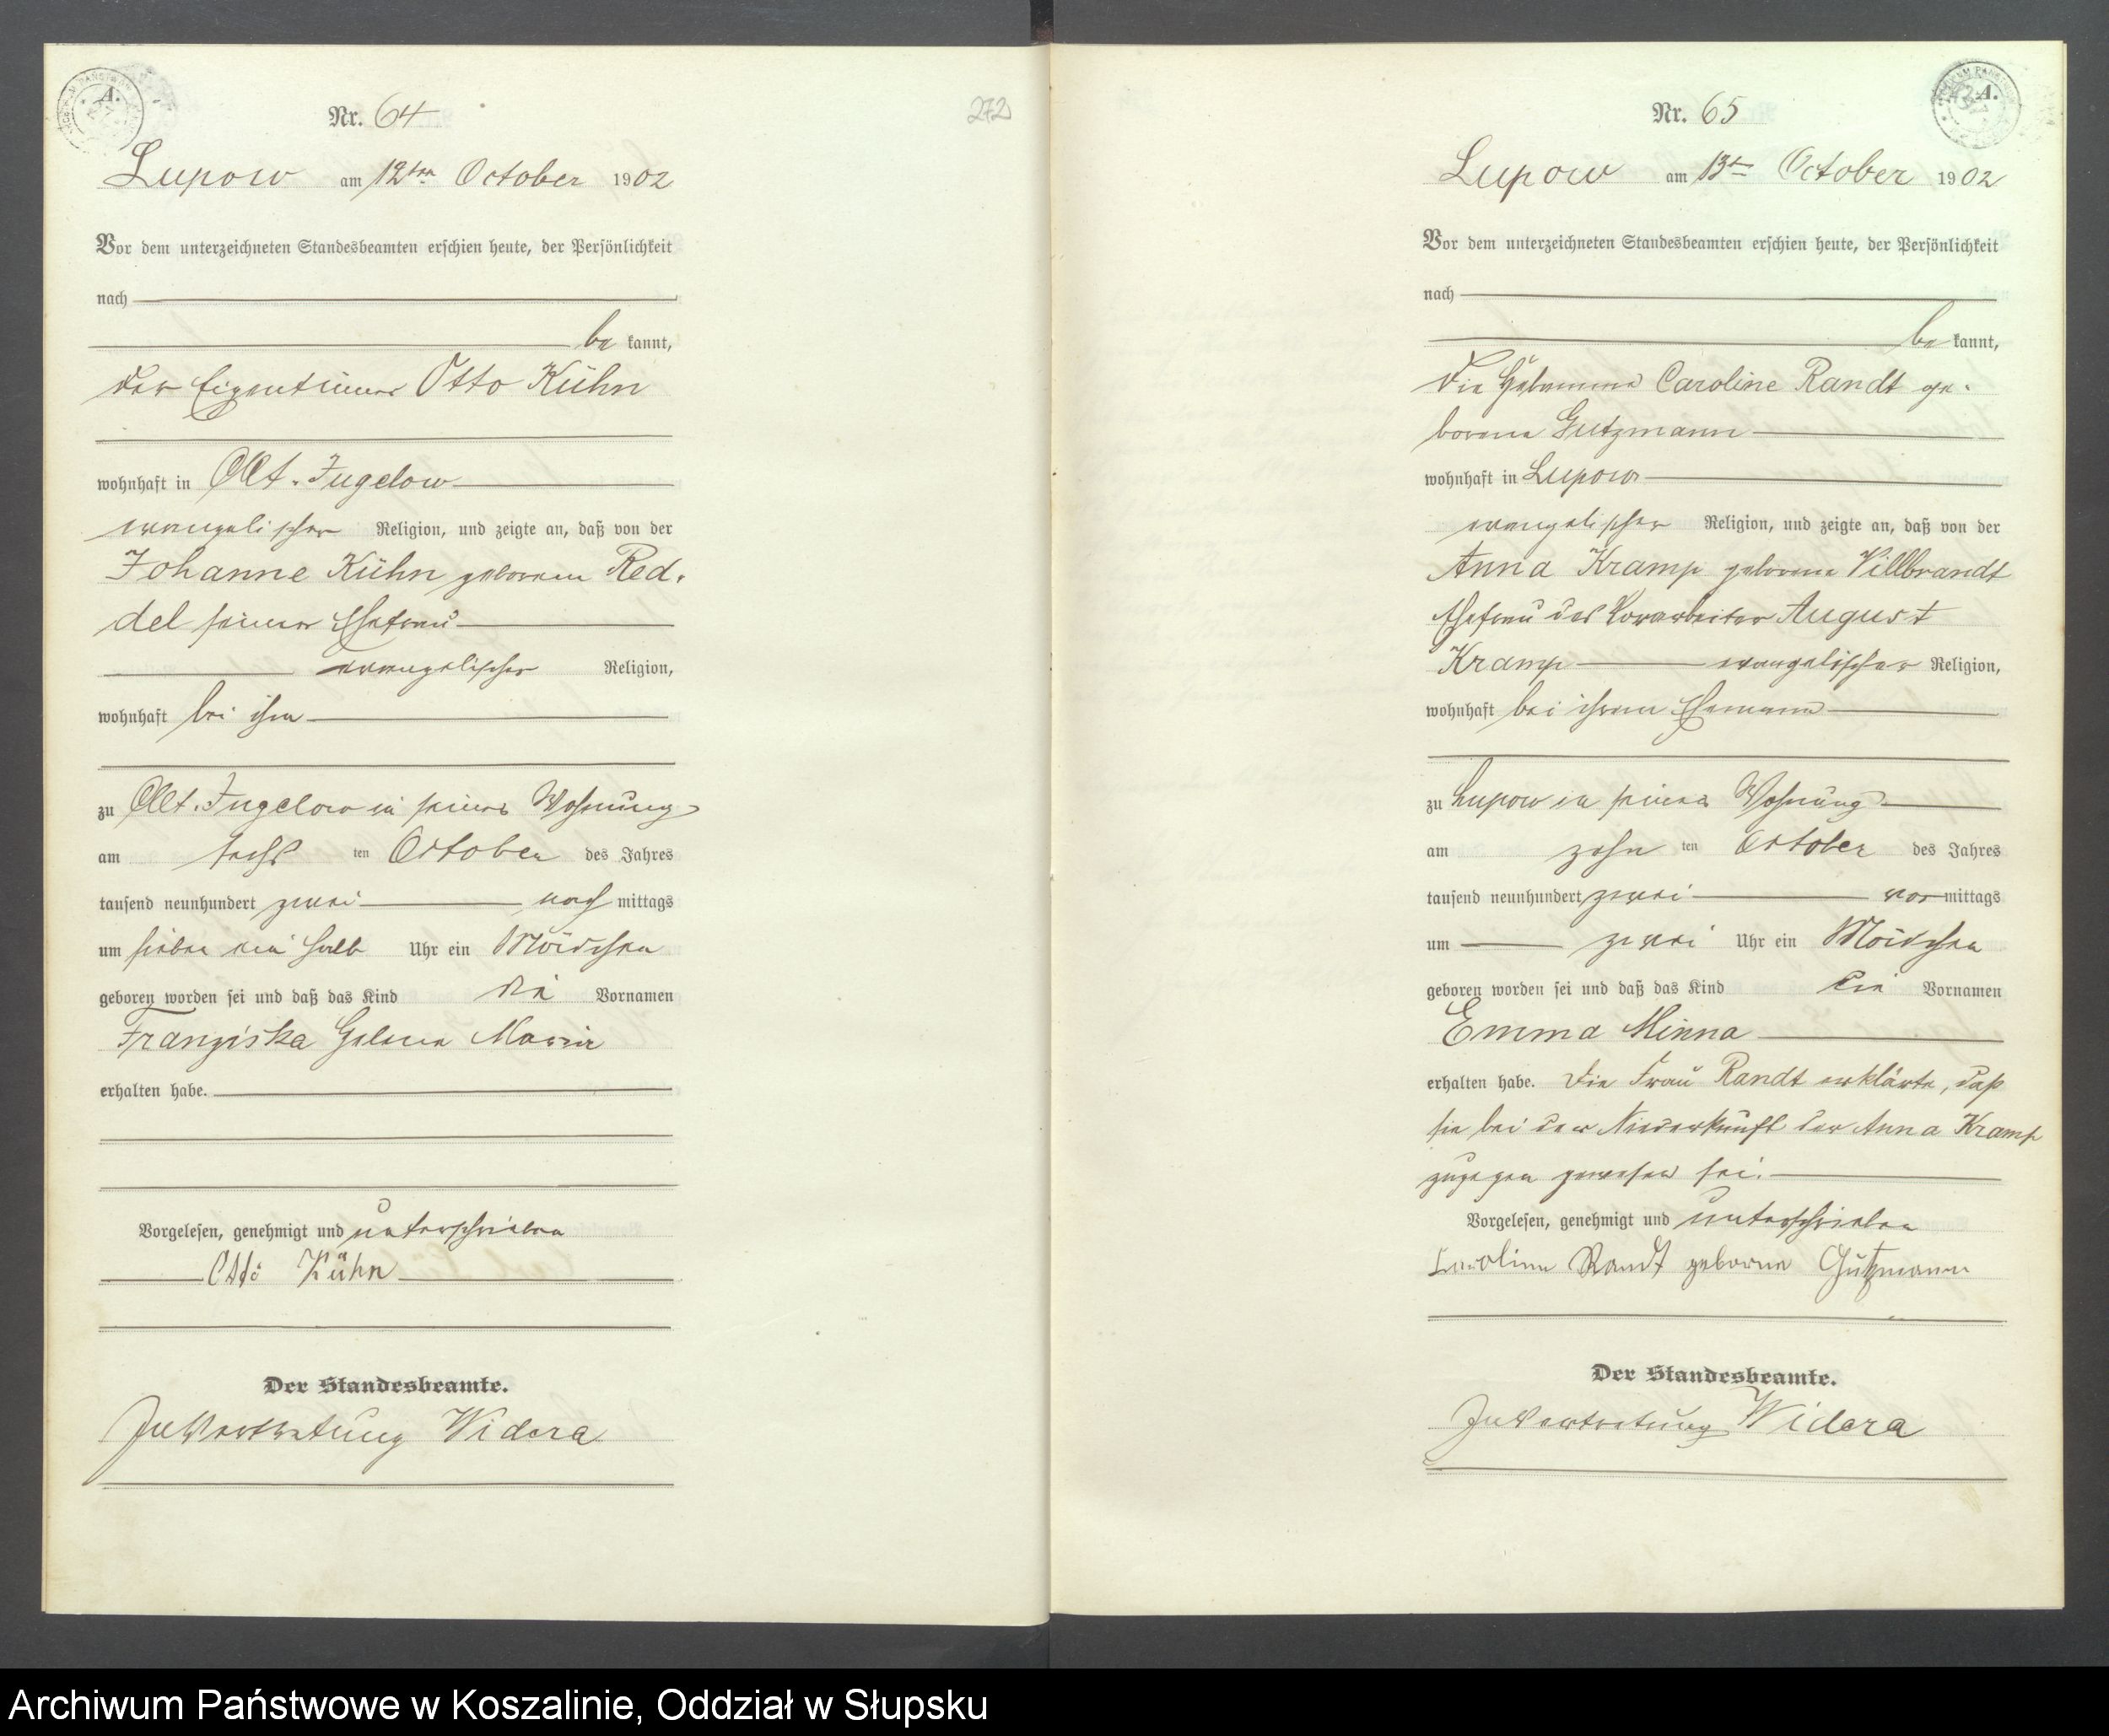 A.
Nr. 64
272
Lupow am 12ten October 1902
Vor dem unterzeichneten Standesbeamten erschien heute, der Persönlichkeit
nach
be kannt,
der Eigentümer Otto Kühn
wohnhaft in Alt-Jugelow
evangelischer Religion, und zeigte an, daß von der
Johanne Kühn geborenen Red-
del seiner Ehefrau
evangelischer Religion,
wohnhaft bei ihm
zu Alt-Jugelow in seiner Wohnung
am sechs ten October des Jahres
tausend neunhundert zwei nach mittags
um sieben ein halb Uhr ein Mädchen
geboren worden sei und daß das Kind die Vornamen
Franziska Helene Marie
erhalten habe.
Vorgelesen, genehmigt und unterschrieben
Otto Kühn
Der Standesbeamte.
In Vertretung Widera
A.
Nr. 65
Lupow am 13ten October 1902
Vor dem unterzeichneten Standesbeamten erschien heute, der Persönlichkeit
nach
be kannt,
die Hebamme Caroline Randt ge-
borene Gutzmann
wohnhaft in Lupow
evangelischer Religion, und zeigte an, daß von der
Anna Kramp geborene Villbrandt
Ehefrau des Vorarbeiter August
Kramp evangelischer Religion,
wohnhaft bei ihrem Ehemann
zu Lupow in seiner Wohnung
am zehn ten October des Jahres
tausend neunhundert zwei vor mittags
um zwei Uhr ein Mädchen
geboren worden sei und daß das Kind die Vornamen
Emma Minna
erhalten habe. Die Frau Randt erklärte, daß
sie bei der Niederkunft der Anna Kramp
zugegen gewesen sei.
Vorgelesen, genehmigt und unterschrieben
Caroline Randt geborne Gutzmann
Der Standesbeamte.
In Vertretung Widera
Archiwum Państwowe w Koszalinie, Oddział w Słupsku